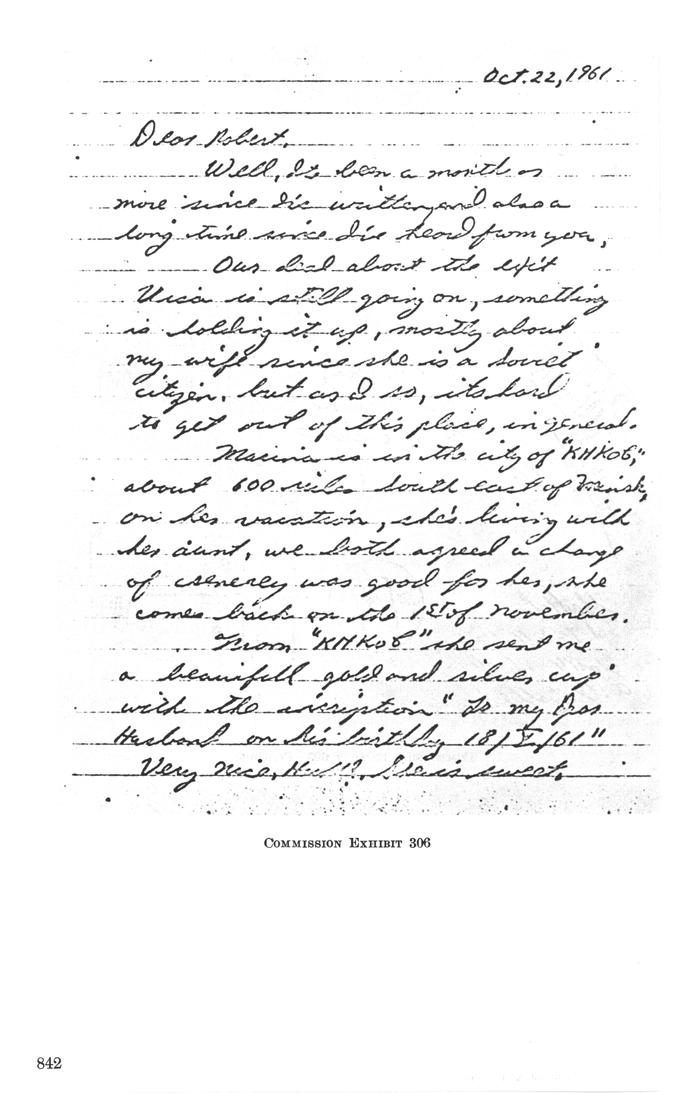 Oct. 22, 1961
Dear Robert.
Well, Its been a month or
more since I've written, and also a
long time since I've heard from you,
Our deal about the exit
visa is still going on, something
is holding it up, mostly about
my wife since she is a Soviet
citizen. but as I so, its hard
to get out of this place, in general.
Marina is in the city of "KHKOB,"
about 600 miles south east of Minsk,
on her vacation, she's living with
her aunt, we both agreed a change
of csenerey was good for her, she
comes back on the 1st of november.
From "KHKOB" she sent me
a beauifull gold and silver cup
with the incription "To my Dear
Husband on his birthby 18/X/61"
Very nice, Huh!?, She is sweet.
COMMISSION EXHIBIT 306
842